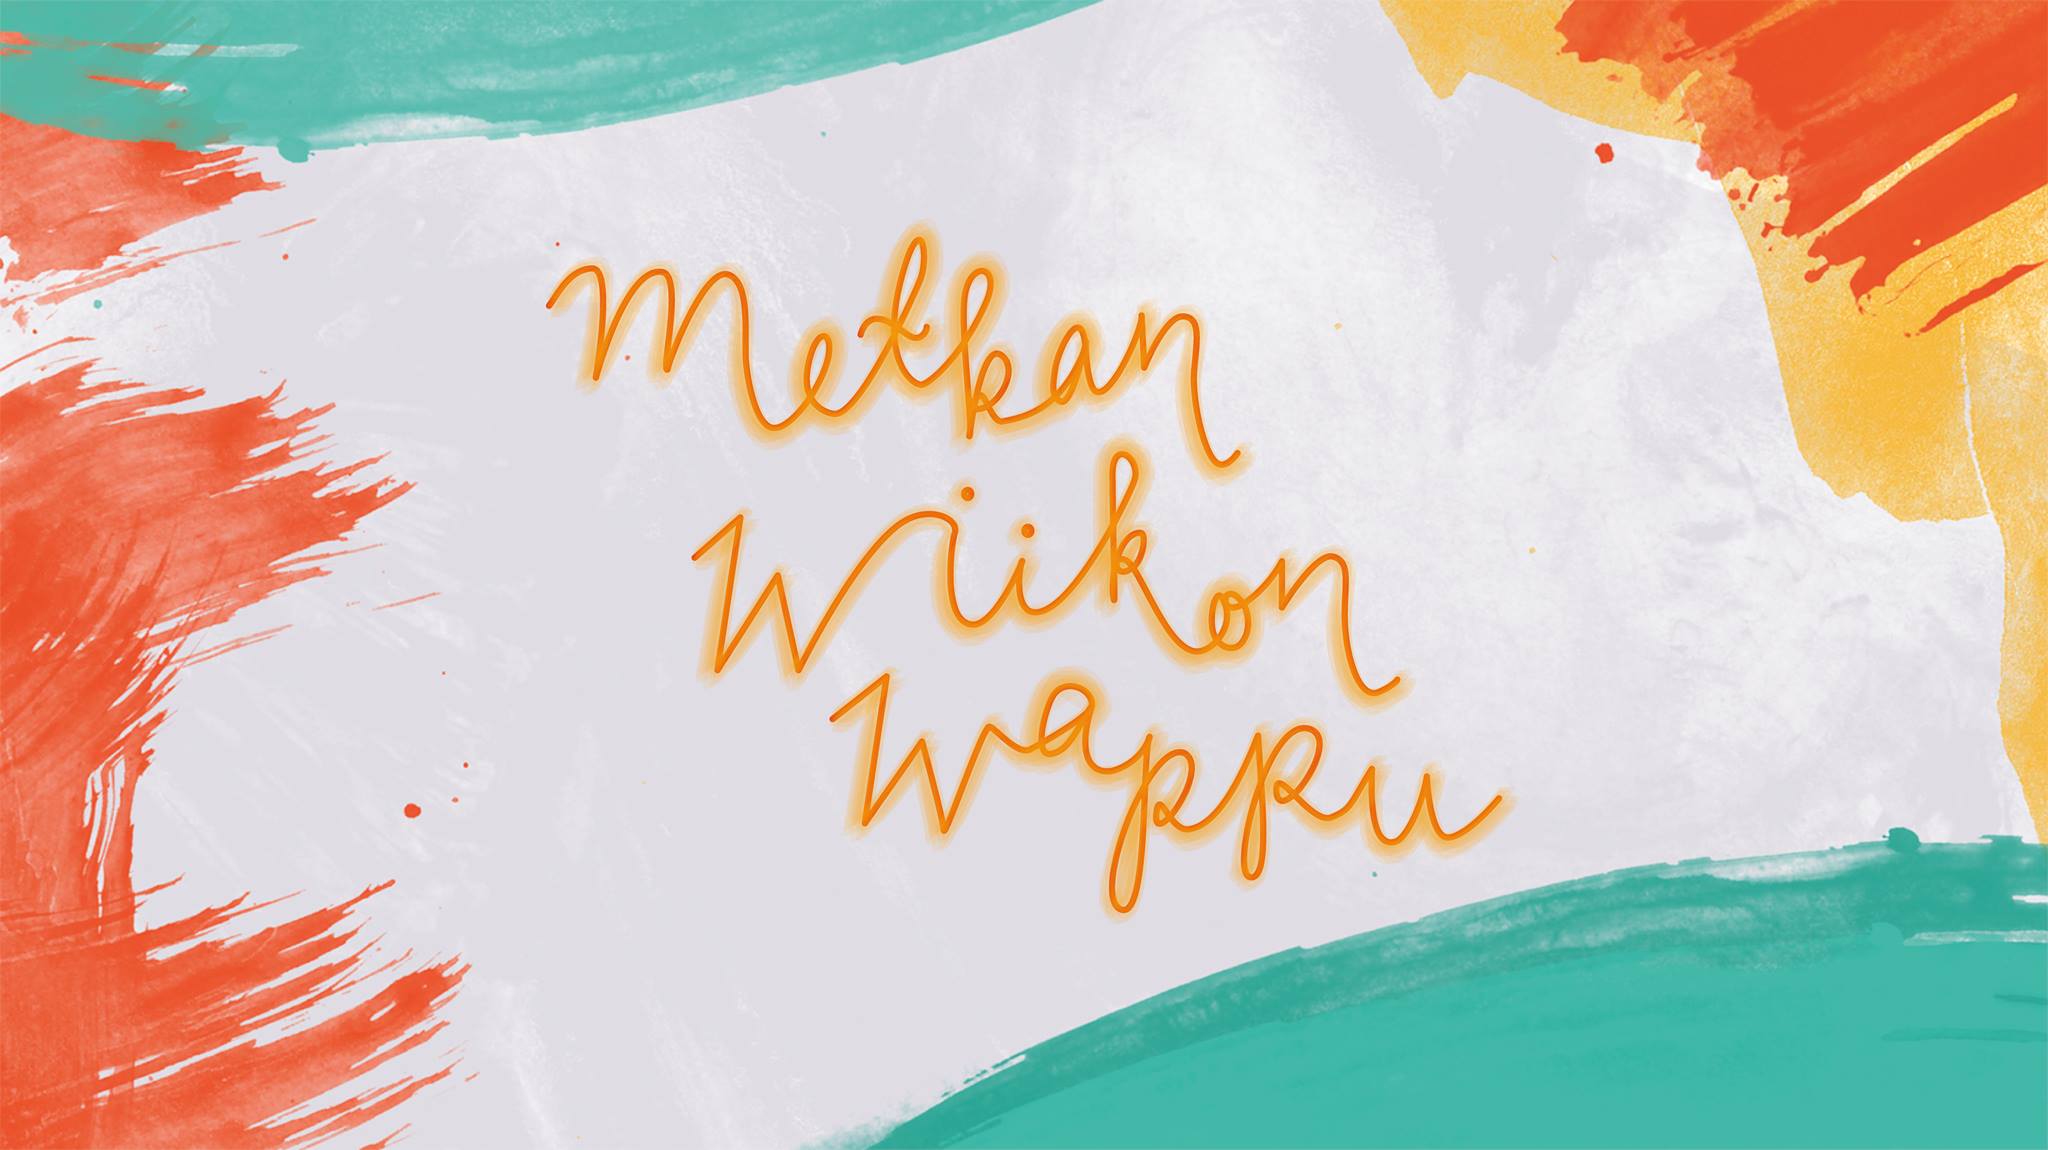 Metkan
Wiikon
Wappu